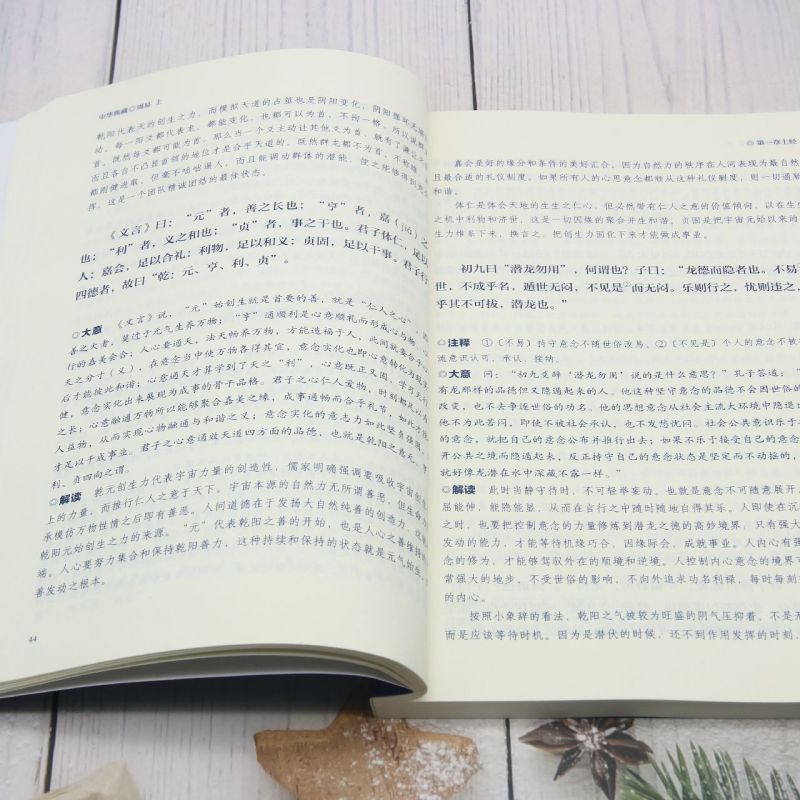 中华典藏◎周易 上
乾阳代表天的创生之力，而模拟天道的占筮也是阴阳变化，阴阳循环无端
动。每一阳爻都代表龙，都能变化，也都可以为首，不拘一格，所以说群
首。既然每爻都可能为首，那么当一个爻主动让其他爻为首，就有了谦让之
而且各自不凸显首领的地位才是合乎天道的。既然群龙都不为首，不称雄，
都刚健进取，但毫不咄咄逼人，而且能调动群体的潜能，使之能够得到充
挥，这是一个团队精诚团结的最佳状态。
《文言》曰：“元”者，善之长也；“亨”者，嘉（jiā）之
也；“利”者，义之和也；“贞”者，事之干也。君子体仁，足以
人；嘉会，足以合礼；利物，足以和义；贞固，足以干事。君子行
四德者，故曰“乾：元、亨、利、贞”。
◎大意 《文言》说，“元”始创生就是首要的善，就是“仁人之心”，
善之大者，莫过于元气生养万物；“亨”通顺利是心意顺礼而形成心与物、心
行的嘉美会合；人心要通天，法天畅养万物，方能造福于人，此间就要合乎
天之分寸（义），在意念当中使万物各得其宜，意念实化也即心意转化为现实
后才能彼此和谐；心意通天才算学到了天之“利”，心意既正又固，学习天行
健，意念实化出来展现为成事的骨干品格。君子之心仁人爱物，时刻都足以为人
之长；心意融通万物所以能够聚合嘉美之缘，成事通畅而合乎礼节，如此才能
人益物，从而实现心物融通与和谐之义；意念实化的意志力如此坚贞强固，
才足以干成事业。君子之心意通效天道四方面的品德，也就是乾阳之意元、亨、
利、贞四向之谓。
◎解读 乾元创生力代表宇宙力量的创造性，儒家明确强调要吸收宇宙创生
上的力量，而推行仁人之意于天下。宇宙本源的自然力无所谓善恶，但生命力
承模仿万物性情之后即有善恶。人间道德在于发扬大自然纯善的创造力，这就
乾阳元始创生之力的来源。“元”代表乾阳之善的开始，也是人心之善推持的
端。人心要努力集合和保持乾阳善力，这种持续和保持的状态就是元气始生，
善发动之根本。
44
◎第一章上经
嘉会是好的缘分和条件的美好汇合，因为自然力的秩序在人间表现为最自然
且最合适的礼仪制度。如果所有人的心思意念都顺从这种礼仪制度，则一切通顺
和谐。
体仁是体会天地的生生之仁心，但必然带有仁人之意的价值倾向，以在生生
之机中利物和济世，这是一切因缘的聚合并生和谐。贞固是把宇宙元始以来的
生力维系下来，换言之，把创生力面化下来才能做成事业。
初九曰“潜龙勿用”，何谓也？子曰：“龙德而隐者也。不易
世，不成乎名，遁世无闷，不见是②而无闷。乐则行之，忧则违之，
乎其不可拔，潜龙也。”
◎注释 ①〔不易〕持守意念不随世俗改易。②〔不见是〕个人的意念不被
流意识认可，承认、接纳。
◎大意 问：“初九爻辞‘潜龙勿用’说的是什么意思？”孔子答道：“
有龙那样的品德但又隐遁起来的人。他这种坚守意念的品德不会因世俗的
改变，也不去争逐世俗的功名。他的思想意念从社会主流大环境中隐遁
他不为此苦闷，即使不被社会承认，也不发愁忧闷。社会公共意识乐于
的意念，就把自己的意念公布并推行出去；如果不乐于接受自己的意念
开公共之境而隐遁起来，反正持守自己的意念状态是坚定而不动摇的，
就好像龙潜在水中深藏不露一样。”
◎解读 此时当静守待时，不可轻举妄动。也就是意念不可随意展开，
屈能伸，能隐能显，从而在言行之中随时随地自得其乐。人即使在沉
之时，也要把控制意念的力量修炼到潜龙之德的高妙境界，只有强大
发动的能力，才能等待机缘巧合，因缘际会，成就事业。人内心有强
念的修为，才能够驾驭外在的顺境和逆境。人控制内心意念的境界可
常强大的地步，不受世俗的影响，不向外追求功名利禄，每时每刻
的内心。
按照小象辞的看法，乾阳之气被较为旺盛的阴气压抑着，不是无
而是应该等待时机。因为是潜伏的时候，还不到作用发挥的时刻，